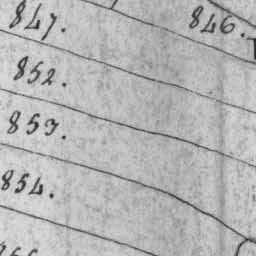 847. 846.
852.
853.
854.